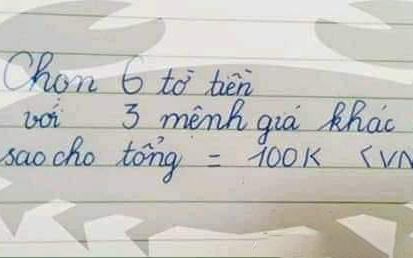 Chọn 6 tờ tiền
với 3 mệnh giá khác
sao cho tổng = 100K (VN